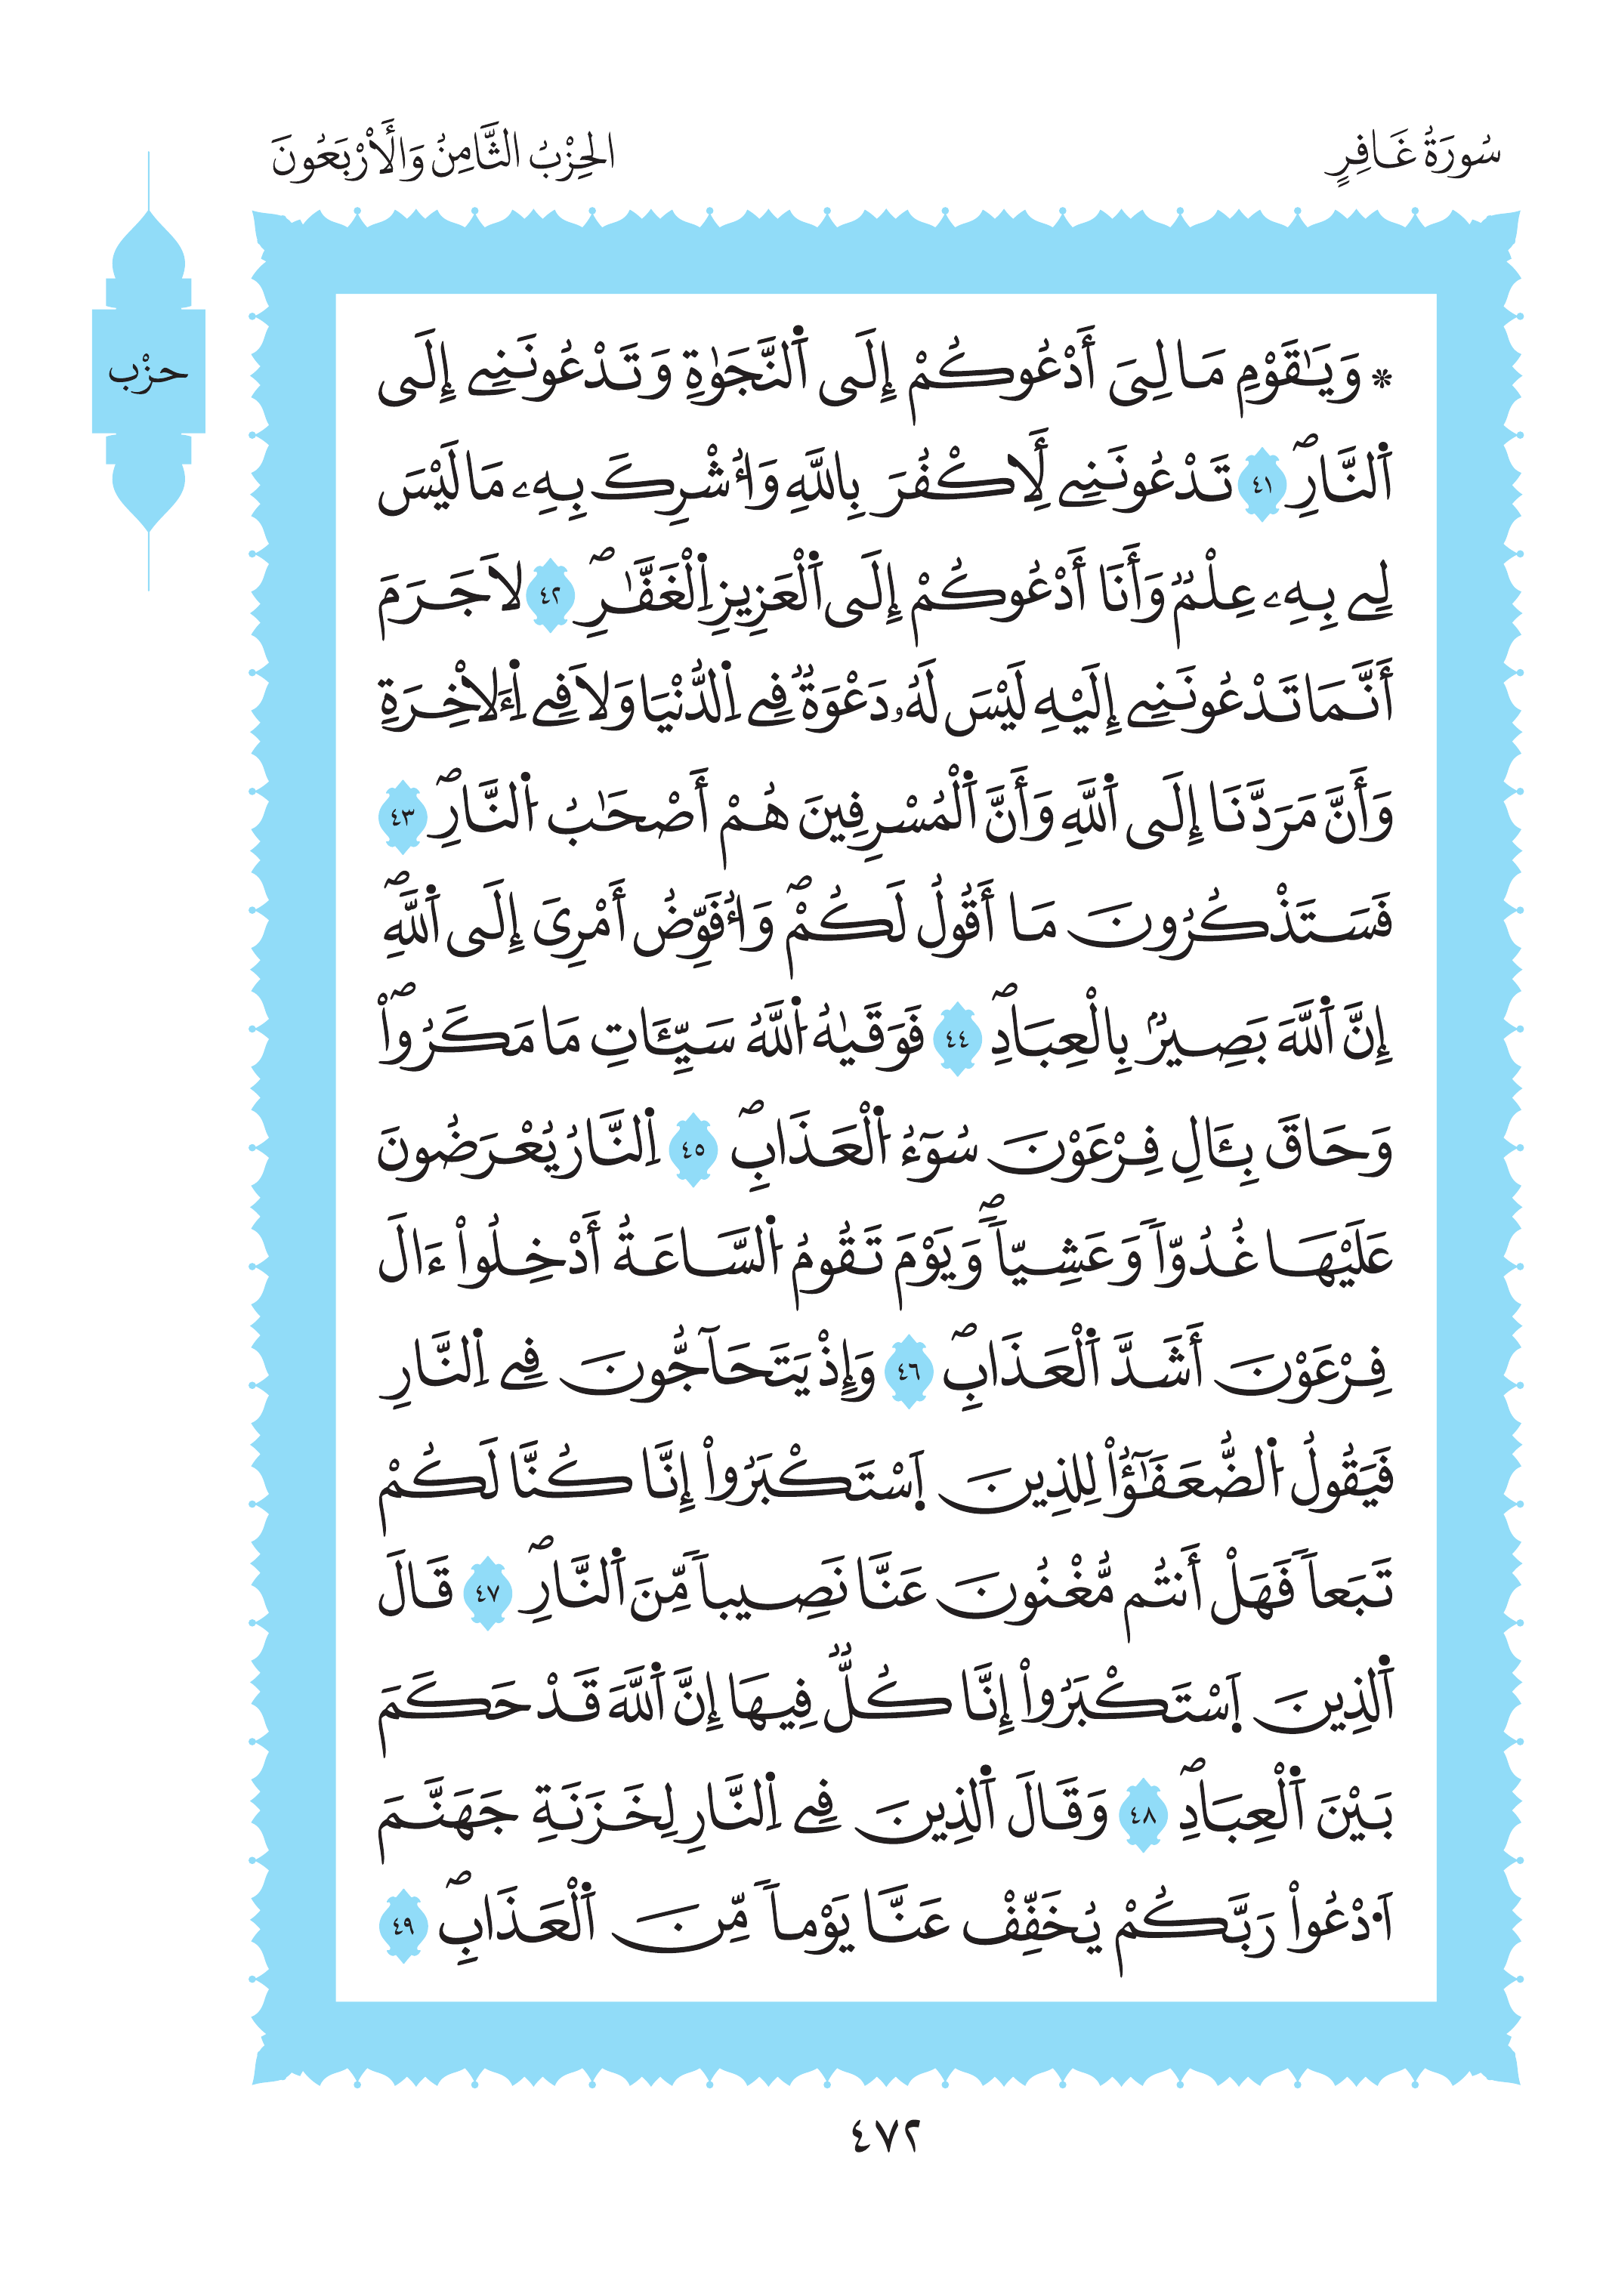 سُورَةُ غَافِرٍ
الحِزْبُ الثَّامِنُ وَالْأَرْبَعُونَ
حِزْب
* وَيَٰقَوْمِ مَا لِيَ أَدْعُوكُمْ إِلَى اَ۬لنَّجَوٰةِ وَتَدْعُونَنِےٓ إِلَى
اَ۬لنّ۪ارِۖ ٤١ تَدْعُونَنِے لِأَكْفُرَ بِاللَّهِ وَأُشْرِكَ بِهِۦ مَا لَيْسَ
لِے بِهِۦ عِلْمٞ وَأَنَا أَدْعُوكُمْ إِلَى اَ۬لْعَزِيزِ اِ۬لْغَفَّٰرِۖ ٤٢ لَا جَرَمَ
أَنَّمَا تَدْعُونَنِے إِلَيْهِ لَيْسَ لَهُۥ دَعْوَةٞ فِے اِ۬لدُّنْيَا وَلَا فِے اِ۬لَأخِرَةِ
وَأَنَّ مَرَدَّنَا إِلَى اَ۬للَّهِ وَأَنَّ اَ۬لْمُسْرِفِينَ هُمْ أَصْحَٰبُ اُ۬لنَّارِۖ ٤٣
فَسَتَذْكُرُونَ مَا أَقُولُ لَكُمْۖ وَأُفَوِّضُ أَمْرِيَ إِلَى اَ۬للَّهِۖ
إِنَّ اَ۬للَّهَ بَصِيرُۢ بِالْعِبَادِۖ ٤٤ فَوَقَيٰهُ اُ۬للَّهُ سَيِّـَٔاتِ مَا مَكَرُواْۖ
وَحَاقَ بِـَٔالِ فِرْعَوْنَ سُوٓءُ اُ۬لْعَذَابِۖ ٤٥ اِ۬لنَّارُ يُعْرَضُونَ
عَلَيْهَا غُدُوّاٗ وَعَشِيّاٗۖ وَيَوْمَ تَقُومُ اُ۬لسَّاعَةُ أَدْخِلُواْ ءَالَ
فِرْعَوْنَ أَشَدَّ اَ۬لْعَذَابِۖ ٤٦ وَإِذْ يَتَحَآجُّونَ فِے اِ۬لنَّارِ
فَيَقُولُ اُ۬لضُّعَفَٰٓؤُاْ لِلذِينَ اَ۪سْتَكْبَرُواْ إِنَّا كُنَّا لَكُمْ
تَبَعاٗ فَهَلْ أَنتُم مُّغْنُونَ عَنَّا نَصِيباٗ مِّنَ اَ۬لنَّارِۖ ٤٧ قَالَ
اَ۬لذِينَ اَ۪سْتَكْبَرُواْ إِنَّا كُلّٞ فِيهَا إِنَّ اَ۬للَّهَ قَدْ حَكَمَ
بَيْنَ اَ۬لْعِبَادِۖ ٤٨ وَقَالَ اَ۬لذِينَ فِے اِ۬لنَّارِ لِخَزَنَةِ جَهَنَّمَ
اَ۟دْعُواْ رَبَّكُمْ يُخَفِّفْ عَنَّا يَوْماٗ مِّنَ اَ۬لْعَذَابِۖ ٤٩
٤٧٢